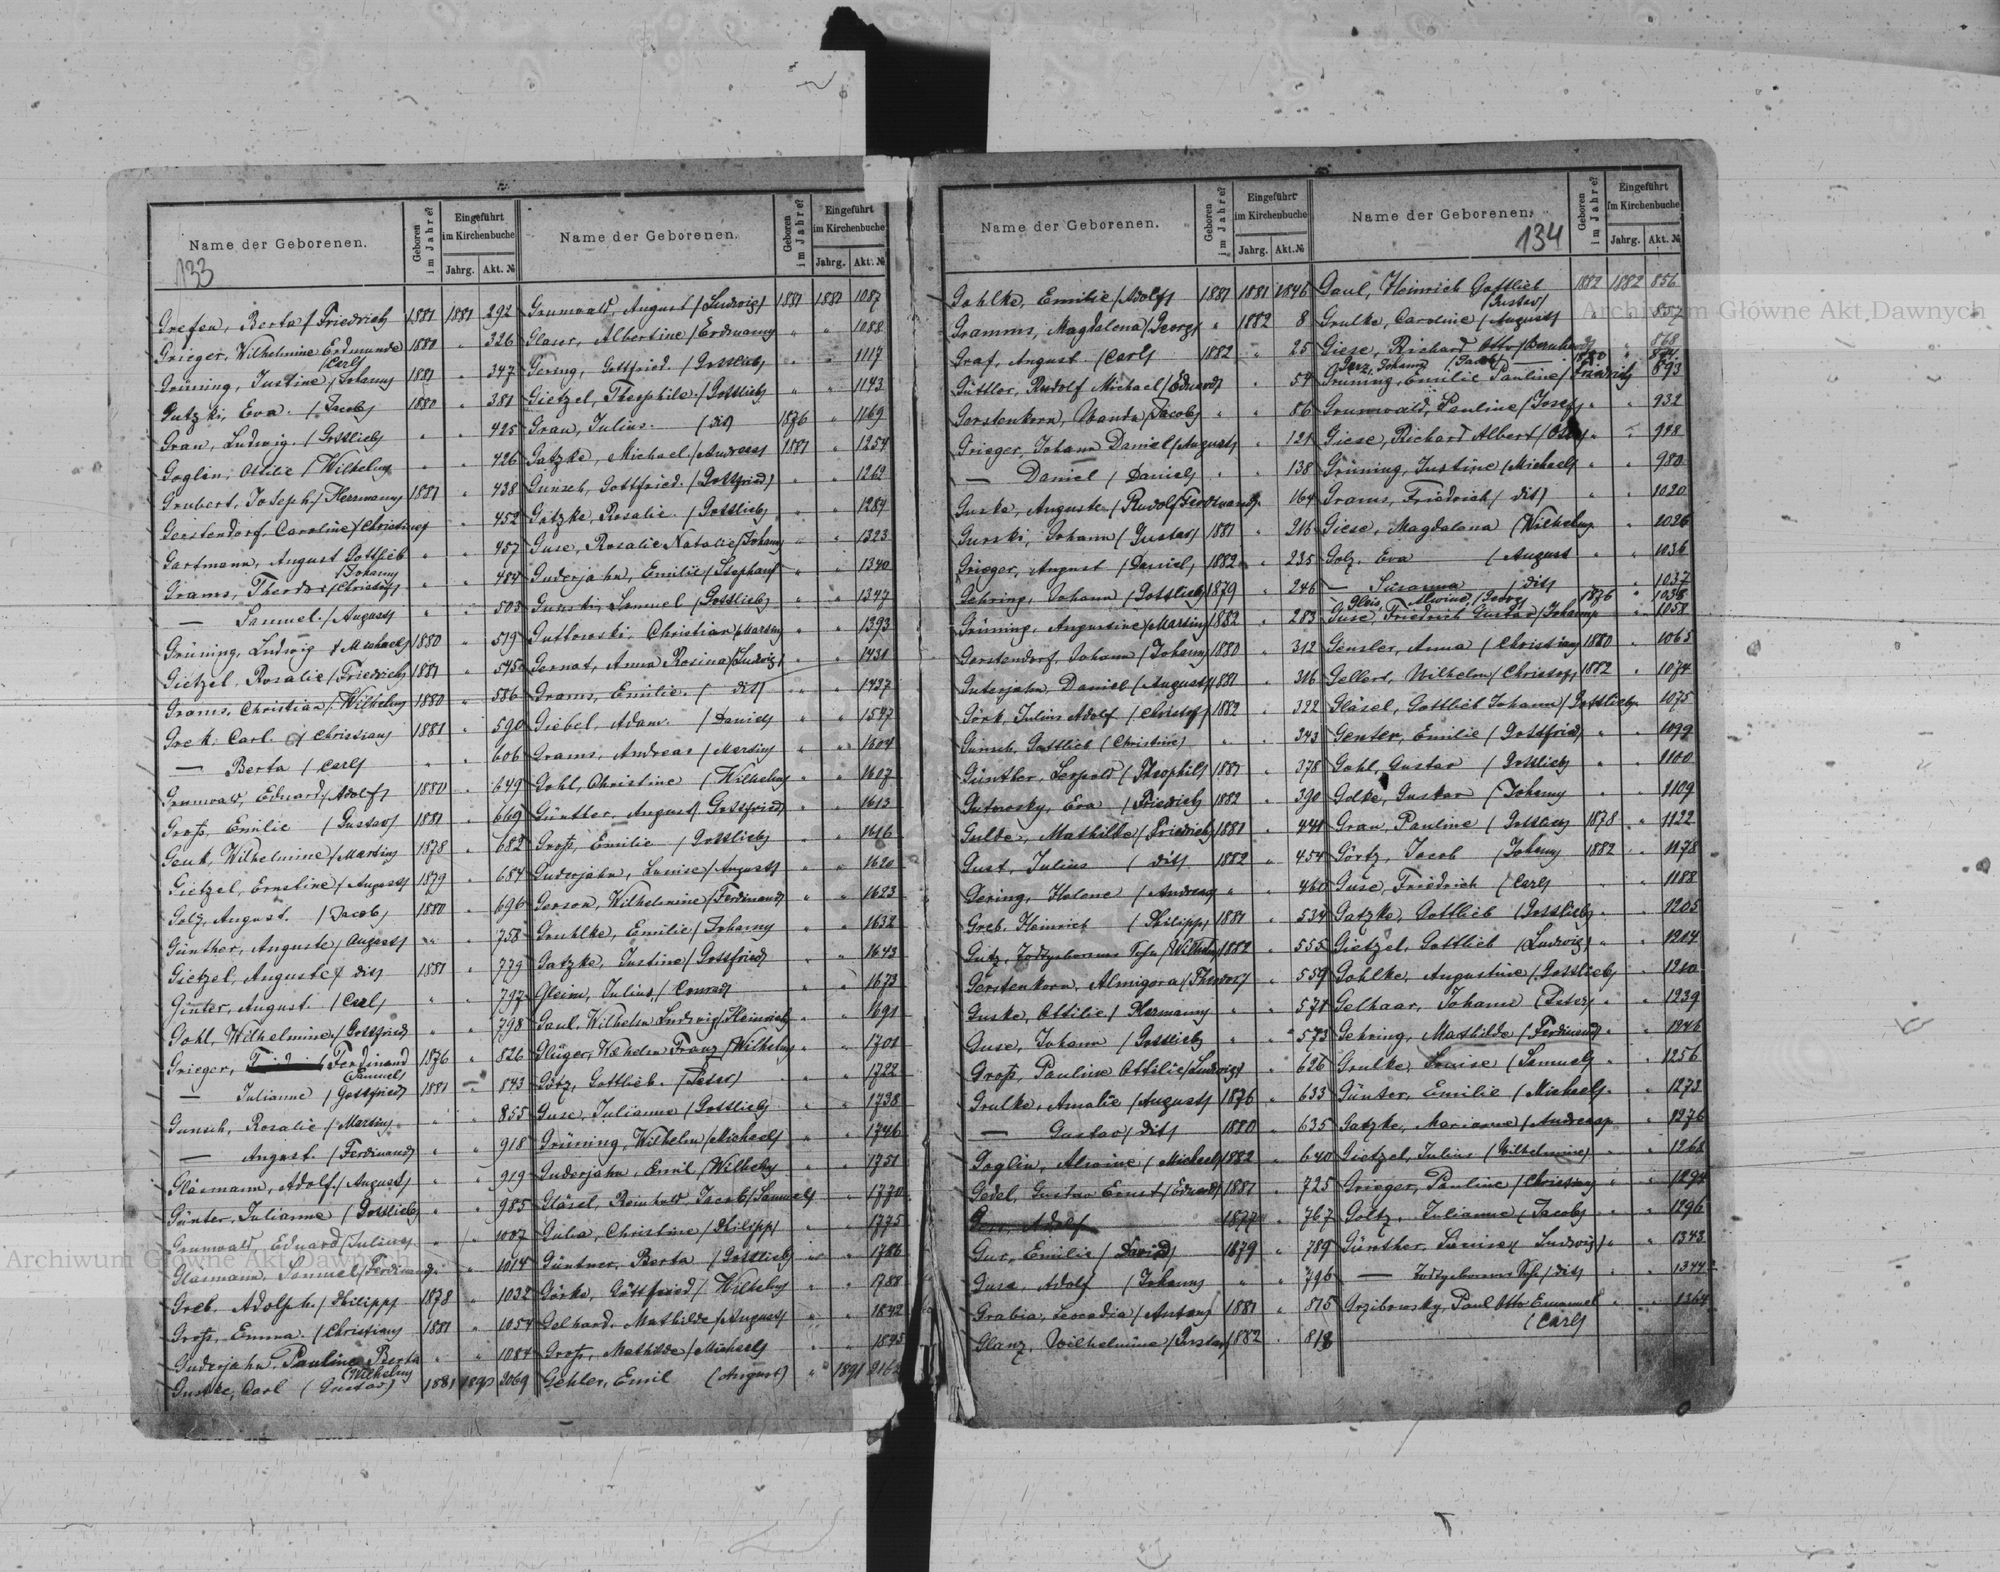 Name der Geborenen.
Geboren im Jahre?
Eingeführt im Kirchenbuche
Jahrg.
Akt. №
133
Grefen, Berta / Friedrich 1881 1881 292
Grieger, Wilhelmine Erdmunde 1880 " 326
(Carl)
Grüning, Justine / Johann 1881 " 347
Gutzki, Eva. / Jacob 1880 " 381
Gran, Ludwig. / Gottlieb " " 425
Goglin, Ottilie / Wilhelm " " 426
Grubert, Joseph / Herrmann 1881 " 438
Gerstendorf, Caroline / Christine " " 452
Gartmann, August Gottlieb " " 457
(Johann)
Grams, Theodor / Christof " " 484
— Samuel. / August " " 503
Grüning, Ludwig / Michael 1880 " 519
Gietzel, Rosalie / Friedrich 1881 " 545
Grams, Christian / Wilhelm 1880 " 586
Greck, Carl. / Christian 1881 " 590
— Berta / Carl " " 606
Grunwald, Eduard / Adolf 1880 " 649
Groß, Emilie / Gustav 1881 " 669
Genk, Wilhelmine / Martin 1878 " 682
Gietzel, Ernstine / August 1879 " 684
Golz, August. / Jacob 1880 " 696
Günther, Auguste / August " " 758
Gietzel, Auguste / dit 1881 " 779
Ginter, August. / Carl " " 797
Gohl, Wilhelmine / Gottfried " " 798
Grieger, Ferdinand 1876 " 826
(Samuel)
— Julianne / Gottfried 1881 — 843
Gunsch, Rosalie / Martin " " 855
— August. / Ferdinand " " 918
Gläsmann, Adolf. / August " " 919
Günter, Julianne / Gottlieb " " 985
Grunwald Eduard / Julius " " 1007
Glasmann, Samuel / Ferdinand " " 1014
Greb. Adolph. / Philipp 1878 " 1032
Groß, Emma. / Christian 1881 " 1054
Guderjahn, Pauline Berta " " 1084
(Wilhelm)
Guske, Carl (Gustav) 1881 1890 2069
Name der Geborenen.
Geboren im Jahre?
Eingeführt im Kirchenbuche
Jahrg.
Akt. №
Grunwald, August / Ludwig 1881 1881 1087
Glaser, Albertine / Erdmann " " 1088
Gering, Gottfried. / Gottlieb " " 1117
Gietzel, Theophile. / Gottlieb " " 1143
Grau, Julius. / dit 1876 " 1169
Gatzke, Michael. / Andreas 1881 " 1254
Gunsch, Gottfried. / Gottfried " " 1262
Gatzke, Rosalie. / Gottlieb " " 1284
Guse, Rosalie Natalie / Johann " " 1323
Guderjahn, Emilie / Stephan " " 1340
Gurski, Samuel / Gottlieb " " 1347
Gutkowski, Christian / Martin " " 1393
Gernat, Anna Rosina / Ludwig " " 1431
Grams, Emilie. / dit " " 1437
Giebel, Adam. / Daniel " " 1527
Grams, Andreas / Martin " " 1604
Gohl, Christine / Wilhelm " " 1607
Günther, August / Gottfried " " 1613
Groß, Emilie / Gottlieb " " 1616
Guderjahn, Louise / August " " 1620
Gerson, Wilhelmine / Ferdinand " " 1623
Gruhlke, Emilie / Johann " " 1632
Gatzke, Justine / Gottfried " " 1643
Gleim, Julius / Conrad " " 1673
Gaul, Wilhelm Ludwig / Heinrich " " 1691
Glüger, Wilhelm Franz / Wilhelm " " 1701
Götz, Gottlieb. / Peter " " 1722
Guse, Julianne / Gottlieb " " 1738
Grüning, Wilhelm / Michael " " 1746
Guderjahn, Emil / Wilhelm " " 1751
Gläsel, Reinhold Jacob / Samuel " " 1770
Gulia, Christine / Philipp " " 1775
Güntner, Berta / Gottlieb " " 1786
Görke, Gottfried / Wilhelm " " 1788
Gelhard, Mathilde / August " " 1842
Groß, Mathilde / Michael " " 1845
Gehler, Emil (August) " 1891 2162
Name der Geborenen.
Geboren im Jahre?
Eingeführt im Kirchenbuche
Jahrg.
Akt. №
Gohlke, Emilie / Adolf 1881 1881 1846
Gramms, Magdalena / Georg " 1882 8
Graf, August / Carl 1882 " 25
Güttler, Rudolf Michael / Eduard " " 54
Gerstenkorn, Wanda / Jacob " " 86
Grieger, Johann Daniel / August " " 121
— Daniel / Daniel " " 138
Guske, Auguste / Rudolf Ferdinand " " 164
Gurski, Johann / Gustav 1881 " 216
Grieger, August / Daniel 1882 " 235
Gehring, Johann / Gottlieb 1879 " 246
Grüning, Augustine / Martin 1882 " 283
Gerstendorf, Johann / Johann 1880 " 312
Guterjahn, Daniel / August 1881 " 316
Görk, Julius Adolf / Christof 1882 " 322
Gunsch, Gottlieb (Christine) " " 343
Günther, Leopold / Theophil 1881 " 378
Gutowsky, Eva / Friedrich 1882 " 390
Gulde, Mathilde / Friedrich 1881 " 441
Gust, Julius / dit 1882 " 454
Gering, Helene / Andreas " " 460
Greb. Heinrich / Philipp 1881 " 534
Gutz, Todtgeborener Sohn / Wilhelm 1882 " 555
Gerstenkorn, Almigora / Theodor " " 559
Guske, Ottilie / Hermann " " 571
Guse, Johann / Gottlieb " " 573
Groß, Pauline Ottilie / Ludwig " " 626
Grulke, Amalie / August 1876 " 633
— Gustav / dit 1880 " 635
Goglin, Alwine / Michael 1882 " 640
Gedel, Gustav Ernst / Eduard 1881 " 725
1877 " 767
Gur, Emilie / David 1879 " 789
Guse, Adolf / Johann " " 796
Grabia, Leocadia / Anton 1881 " 815
Glanz, Wilhelmine / Gustav 1882 " 818
Name der Geborenen.
134
Geboren im Jahre?
Eingeführt im Kirchenbuche
Jahrg.
Akt. №
Gaul, Heinrich Gottlieb 1882 1882 856
(Gustav)
Grulke, Caroline / August " " 857
Giese, Richard Otto / Bernhard " " 868
Gerz, Johann (Jacob) 1880 "
Grüning, Emilie Pauline / Friedrich 893
Grunwald, Pauline / Josef " " 932
Giese, Richard Albert / Otto " " 988
Grüning, Justine / Michael " " 980
Grams, Friedrich / dit " 1020
Giese, Magdalena / Wilhelm " 1026
Golz, Eva / August " " 1036
— Susanna / dit " 1037
Alwine / Georg 1876 " 1038
Guse Friedrich Gustav / Johann " 1058
Gensler, Anna / Christian 1880 " 1065
Gellert, Wilhelm / Christof 1882 " 1074
Gläsel, Gottlieb Johann / Gottlieb " 1075
Genter, Emilie / Gottfried " " 1099
Gohl, Gustav / Gottlieb " " 1100
Golke, Gustav / Johann " " 1109
Gran, Pauline / Gottlieb 1878 " 1122
Görtz, Jacob / Johann 1882 " 1178
Guse, Friedrich / Carl " " 1188
Gatzke, Gottlieb / Gottlieb " " 1205
Gietzel, Gottlieb / Ludwig " " 1204
Gohlke, Augustine / Gottlieb " 1210
Gelhaar, Johann / Peter " " 1239
Gehring, Mathilde / Ferdinand " " 1246
Grulke, Louise / Samuel " " 1256
Günter, Emilie / Michael " " 1273
Gatzke, Marianne / Andreas " " 1276
Gietzel, Julius (Wilhelmine) " " 1268
Grieger, Pauline / Christian " " 1294
Goltz, Julianne / Jacob " " 1296
Günther, Louise / Ludwig " " 1343
— Todtgeborener Sohn / dit " " 1344
Grzibowsky, Paul Otto Emanuel " " 1364
(Carl)
Archiwum Główne Akt Dawnych
Archiwum Główne Akt Dawnych